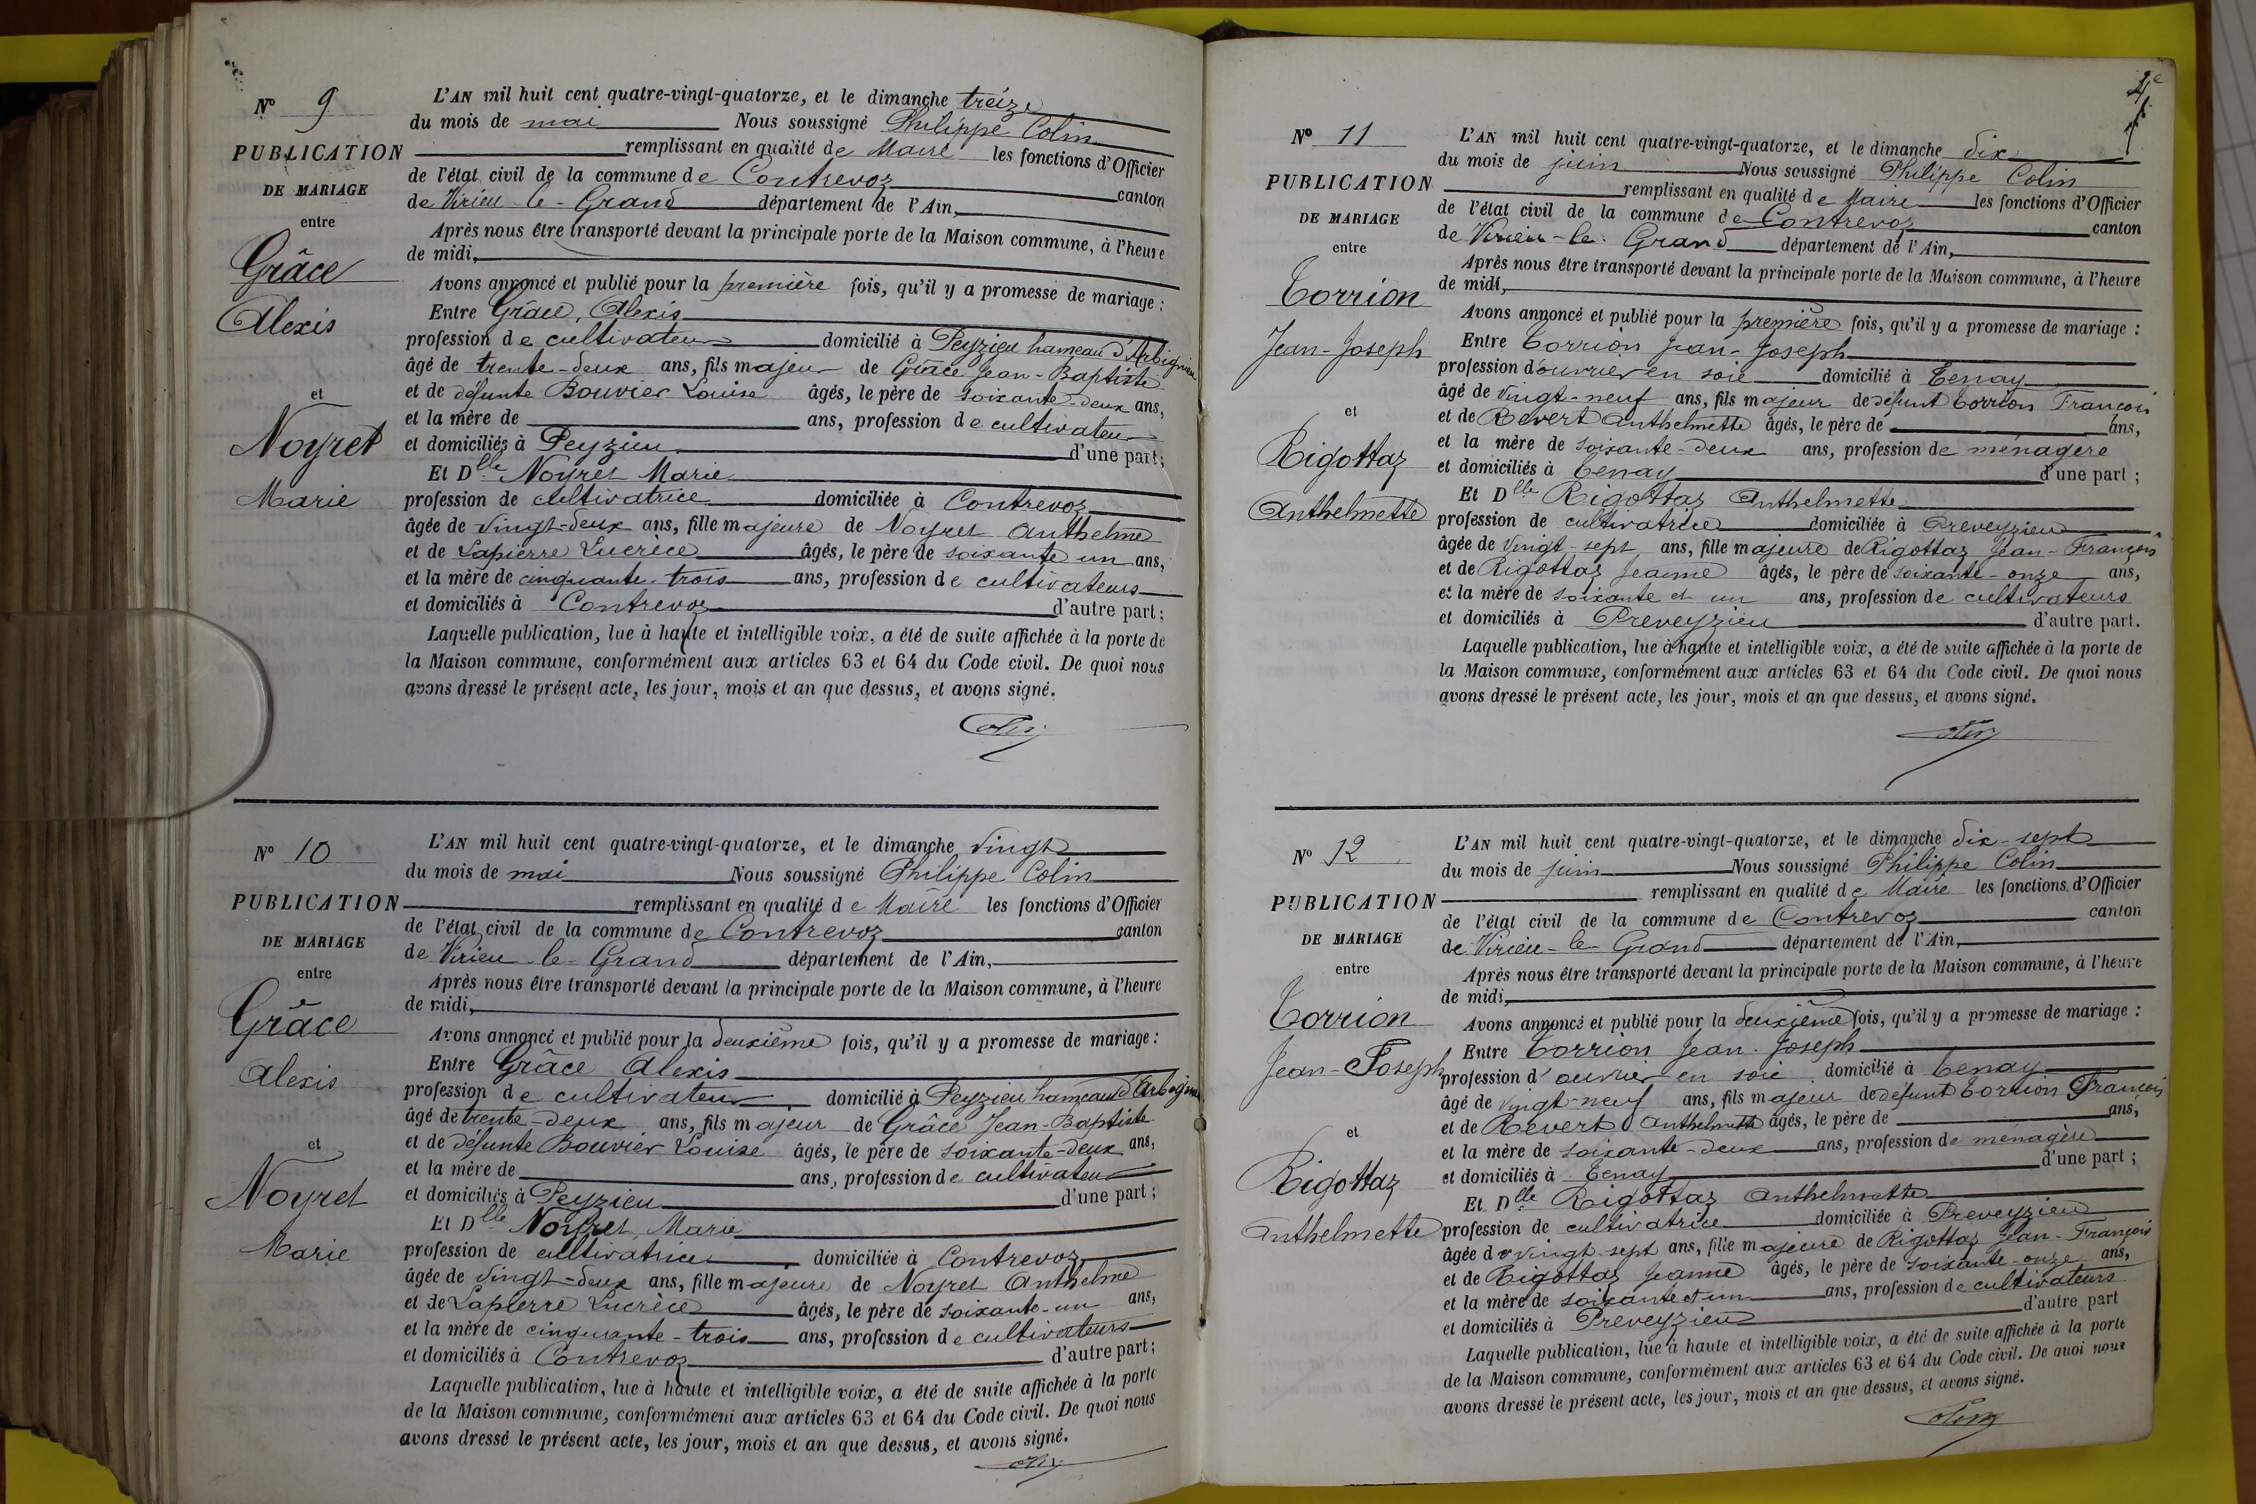 Nº 9
PUBLICATION
DE MARIAGE
entre
Grâce
Alexis
et
Noyret
Marie
L'AN mil huit cent quatre-vingt-quatorze, et le dimanche treize
du mois de mai Nous soussigné Philippe Colin
remplissant en qualité de Maire les fonctions d'Officier
de l'état civil de la commune de Contrevoz canton
de Virieu-le-Grand département de l'Ain,
Après nous être transporté devant la principale porte de la Maison commune, à l'heure
de midi,
Avons annoncé et publié pour la première fois, qu'il y a promesse de mariage :
Entre Grâce, Alexis
profession de cultivateur domicilié à Peyzieu hameau d'Arbignieu
âgé de trente-deux ans, fils majeur de Grâce Jean-Baptiste
et de défunte Bouvier Louise âgés, le père de soixante-deux ans,
et la mère de ans, profession de cultivateur
et domiciliés à Peyzieu d'une part;
Et Dlle Noyret Marie
profession de cultivatrice domiciliée à Contrevoz
âgée de vingt-deux ans, fille majeure de Noyret Anthelme
et de Lapierre Lucrèce âgés, le père de soixante un ans,
et la mère de cinquante-trois ans, profession de cultivateurs
et domiciliés à Contrevoz d'autre part;
Laquelle publication, lue à haute et intelligible voix, a été de suite affichée à la porte de
la Maison commune, conformément aux articles 63 et 64 du Code civil. De quoi nous
avons dressé le présent acte, les jour, mois et an que dessus, et avons signé.
Colin
Nº 10
PUBLICATION
DE MARIAGE
entre
Grâce
Alexis
et
Noyret
Marie
L'AN mil huit cent quatre-vingt-quatorze, et le dimanche vingt
du mois de mai Nous soussigné Philippe Colin
remplissant en qualité de Maire les fonctions d'Officier
de l'état civil de la commune de Contrevoz canton
de Virieu-le-Grand département de l'Ain,
Après nous être transporté devant la principale porte de la Maison commune, à l'heure
de midi,
Avons annoncé et publié pour la deuxième fois, qu'il y a promesse de mariage :
Entre Grâce Alexis
profession de cultivateur domicilié à Peyzieu hameau d'Arbignieu
âgé de trente-deux ans, fils majeur de Grâce Jean-Baptiste
et de défunte Bouvier Louise âgés, le père de soixante-deux ans,
et la mère de ans, profession de cultivateur
et domiciliés à Peyzieu d'une part;
Et Dlle Noyret Marie
profession de cultivatrice domiciliée à Contrevoz
âgée de vingt-deux ans, fille majeure de Noyret Anthelme
et de Lapierre Lucrèce âgés, le père de soixante-un ans,
et la mère de cinquante-trois ans, profession de cultivateurs
et domiciliés à Contrevoz d'autre part;
Laquelle publication, lue à haute et intelligible voix, a été de suite affichée à la porte
de la Maison commune, conformément aux articles 63 et 64 du Code civil. De quoi nous
avons dressé le présent acte, les jour, mois et an que dessus, et avons signé.
Colin
Nº 11
PUBLICATION
DE MARIAGE
entre
Torrion
Jean-Joseph
et
Rigottaz
Anthelmette
L'AN mil huit cent quatre-vingt-quatorze, et le dimanche dix
du mois de juin Nous soussigné Philippe Colin
remplissant en qualité de Maire les fonctions d'Officier
de l'état civil de la commune de Contrevoz canton
de Virieu-le-Grand département de l'Ain,
Après nous être transporté devant la principale porte de la Maison commune, à l'heure
de midi,
Avons annoncé et publié pour la première fois, qu'il y a promesse de mariage :
Entre Torrion Jean-Joseph
profession d'ouvrier en soie domicilié à Tenay
âgé de vingt-neuf ans, fils majeur de défunt Torrion François
et de Revert Anthelmette âgés, le père de ans,
et la mère de soixante-deux ans, profession de ménagère
et domiciliés à Tenay d'une part;
Et Dlle Rigottaz Anthelmette
profession de cultivatrice domiciliée à Preveyzieu
âgée de vingt-sept ans, fille majeure de Rigottaz Jean-François
et de Rigottaz Jeanne âgés, le père de soixante-onze ans,
et la mère de soixante et un ans, profession de cultivateurs
et domiciliés à Preveyzieu d'autre part.
Laquelle publication, lue à haute et intelligible voix, a été de suite affichée à la porte de
la Maison commune, conformément aux articles 63 et 64 du Code civil. De quoi nous
avons dressé le présent acte, les jour, mois et an que dessus, et avons signé.
Colin
Nº 12
PUBLICATION
DE MARIAGE
entre
Torrion
Jean-Joseph
et
Rigottaz
Anthelmette
L'AN mil huit cent quatre-vingt-quatorze, et le dimanche dix-sept
du mois de juin Nous soussigné Philippe Colin
remplissant en qualité de Maire les fonctions d'Officier
de l'état civil de la commune de Contrevoz canton
de Virieu-le-Grand département de l'Ain,
Après nous être transporté devant la principale porte de la Maison commune, à l'heure
de midi,
Avons annoncé et publié pour la deuxième fois, qu'il y a promesse de mariage :
Entre Torrion Jean-Joseph
profession d'ouvrier en soie domicilié à Tenay
âgé de vingt-neuf ans, fils majeur de défunt Torrion François
et de Revert Anthelmette âgés, le père de ans,
et la mère de soixante-deux ans, profession de ménagère
et domiciliés à Tenay d'une part;
Et Dlle Rigottaz Anthelmette
profession de cultivatrice domiciliée à Preveyzieu
âgée de vingt-sept ans, fille majeure de Rigottaz Jean-François
et de Rigottaz Jeanne âgés, le père de soixante-onze ans,
et la mère de soixante et un ans, profession de cultivateurs
et domiciliés à Preveyzieu d'autre part
Laquelle publication, lue à haute et intelligible voix, a été de suite affichée à la porte
de la Maison commune, conformément aux articles 63 et 64 du Code civil. De quoi nous
avons dressé le présent acte, les jour, mois et an que dessus, et avons signé.
Colin